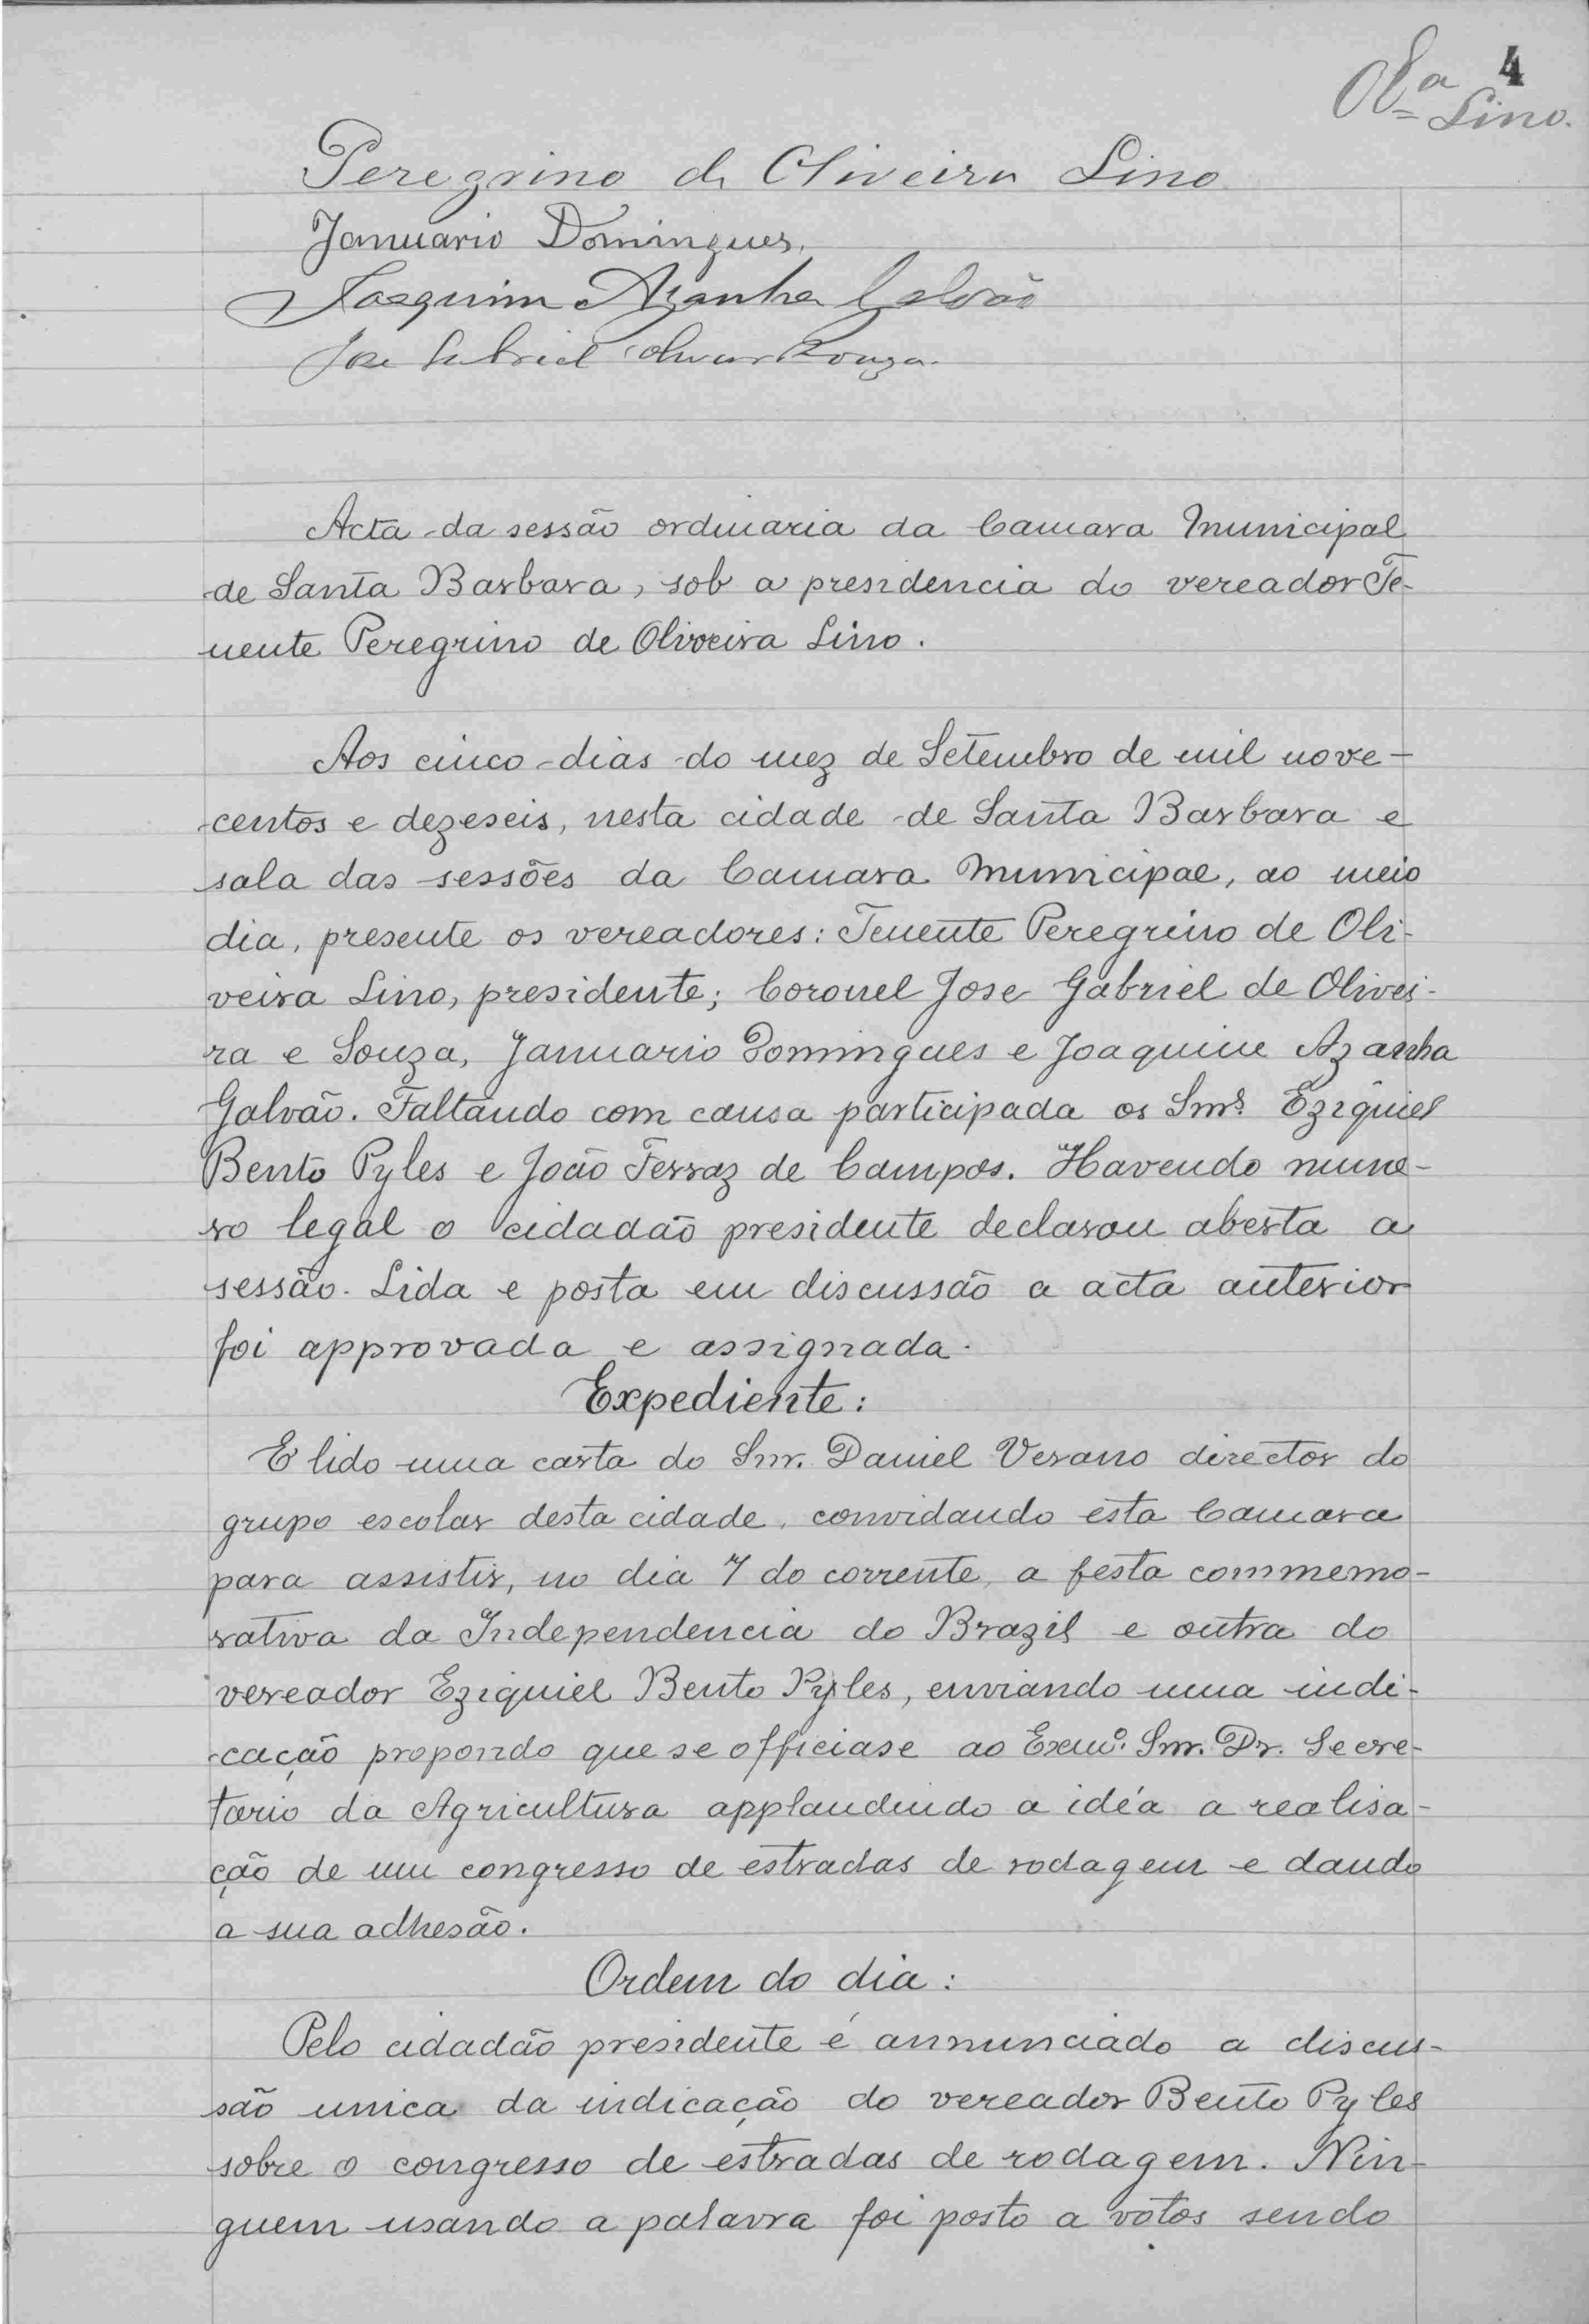 4
Olª Lino.
Peregrino de Oliveira Lino
Januario Domingues.
Joaquim Azanha Galvão
Jose Gabriel Oliveira Souza.
Acta da sessão ordinaria da Camara Municipal
de Santa Barbara, sob a presidencia do vereador Te-
nente Peregrino de Oliveira Lino.
Aos cinco dias do mez de Setembro de mil nove-
centos e dezeseis, nesta cidade de Santa Barbara e
sala das sessões da Camara Municipal, ao meio
dia, presente os vereadores: Tenente Peregrino de Oli-
veira Lino, presidente; Coronel Jose Gabriel de Olivei-
ra e Souza, Januario Domingues e Joaquim Azanha
Galvão. Faltando com causa participada os Snrs. Eziquiel
Bento Pyles e João Ferraz de Campos. Havendo nume-
ro legal o cidadão presidente declarou aberta a
sessão. Lida e posta em discussão a acta anterior
foi approvada e assignada.
Expediente:
E lido uma carta do Snr. Daniel Verano director do
grupo escolar desta cidade, convidando esta Camara
para assistir, no dia 7 do corrente, a festa commemo-
rativa da Independencia do Brazil e outra do
vereador Eziquiel Bento Pyles, enviando uma indi-
cação propondo que se officiase ao Exmº. Snr. Dr. Secre-
tario da Agricultura applaudindo a idéa a realisa-
ção de um congresso de estradas de rodagem e dando
a sua adhesão.
Ordem do dia:
Pelo cidadão presidente é annunciado a discus-
são unica da indicação do vereador Bento Pyles
sobre o congresso de estradas de rodagem. Nin-
guem usando a palavra foi posto a votos sendo